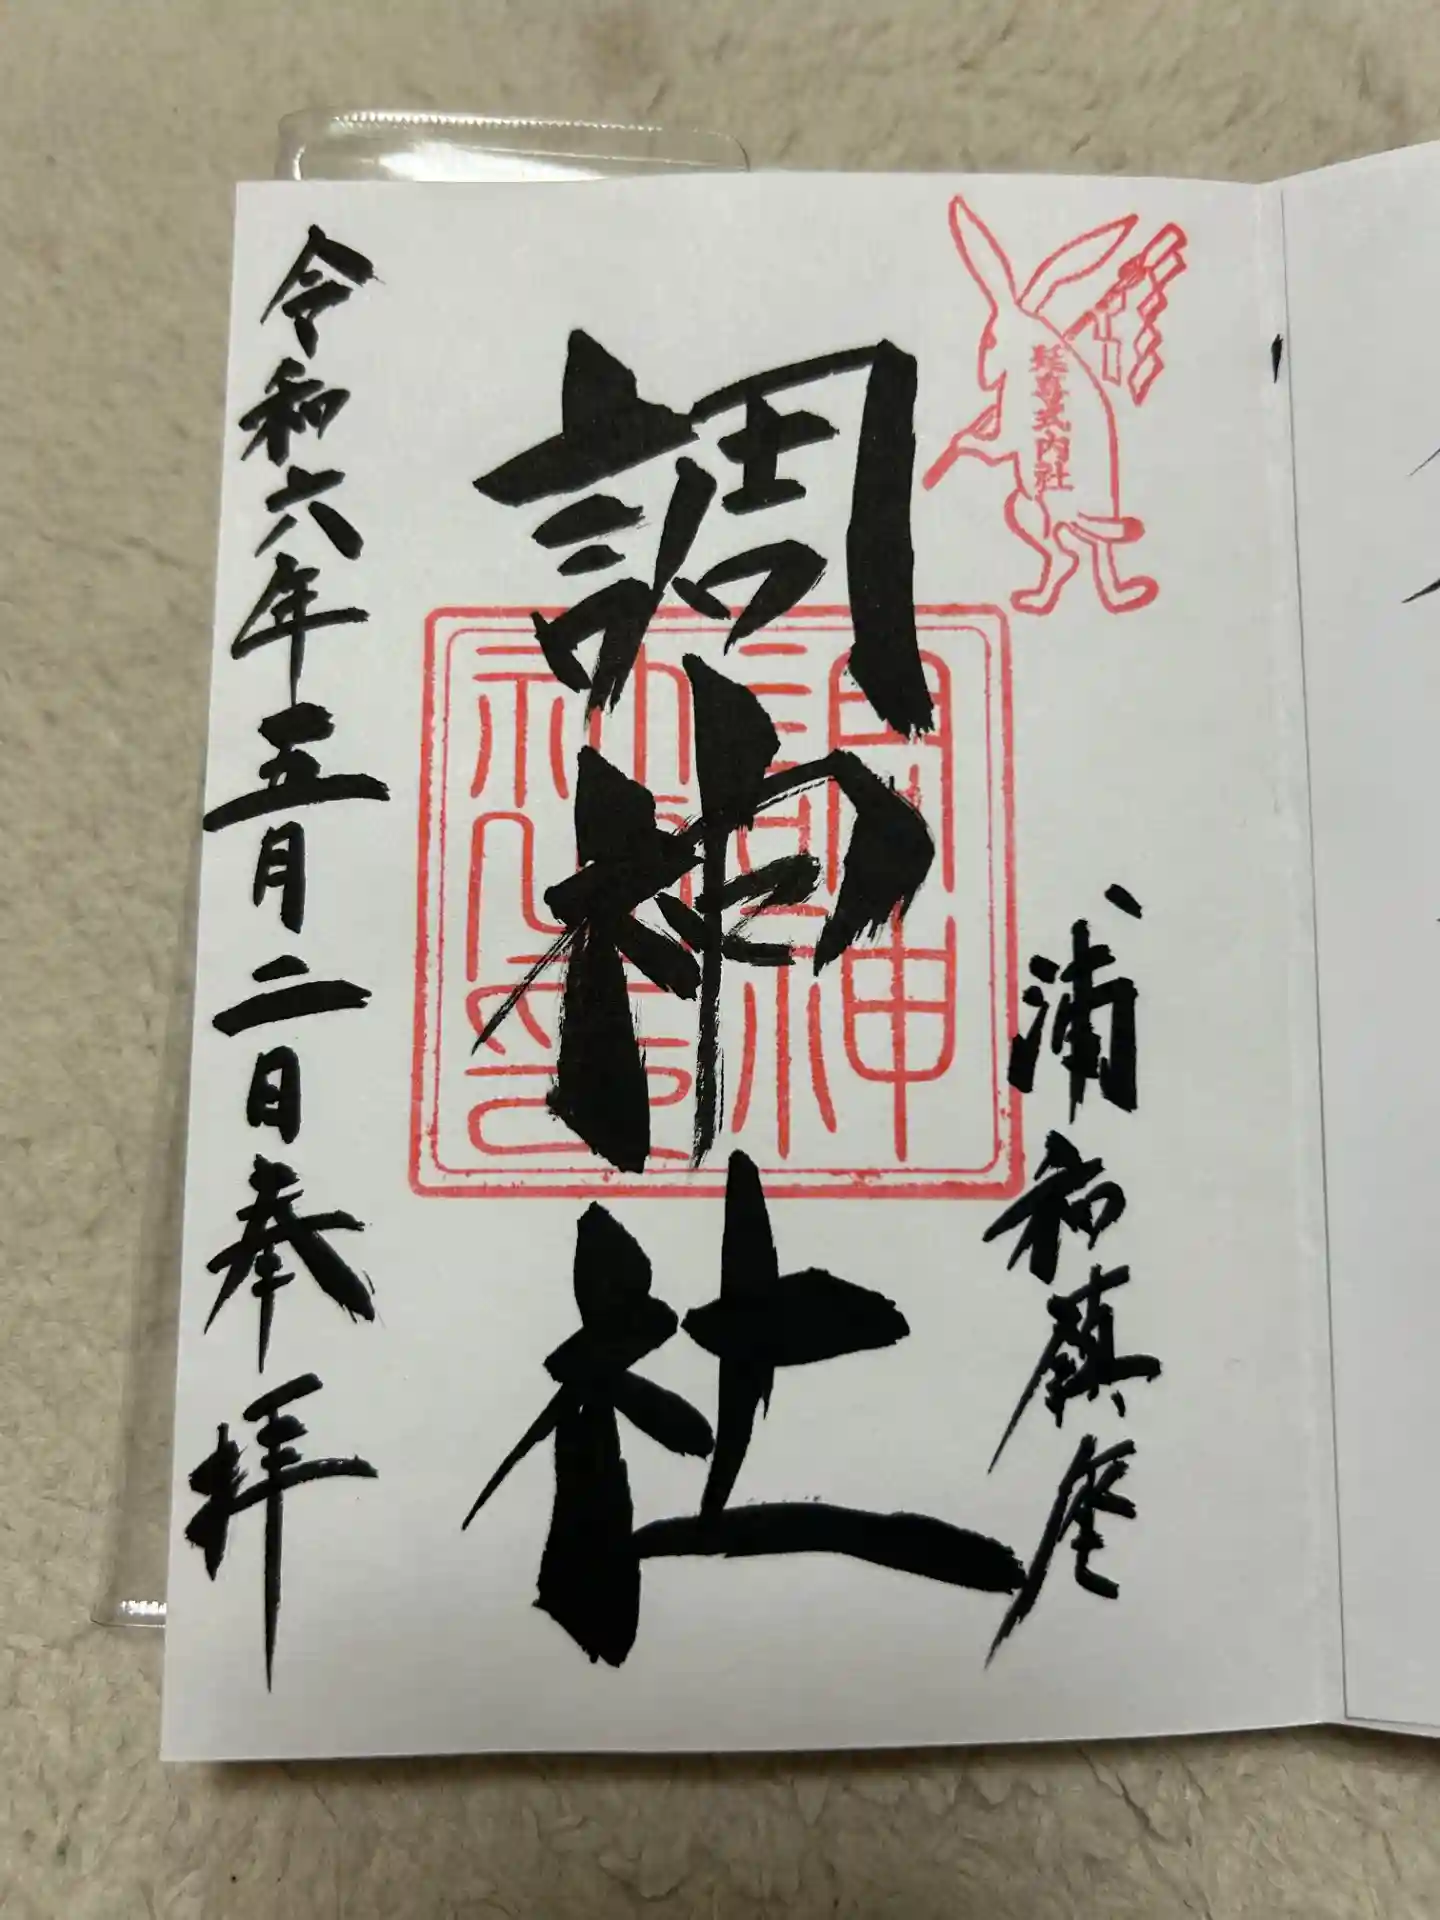 延喜式内社
浦和鎮座
調神社
調神
社之印
令和六年五月二日奉拝